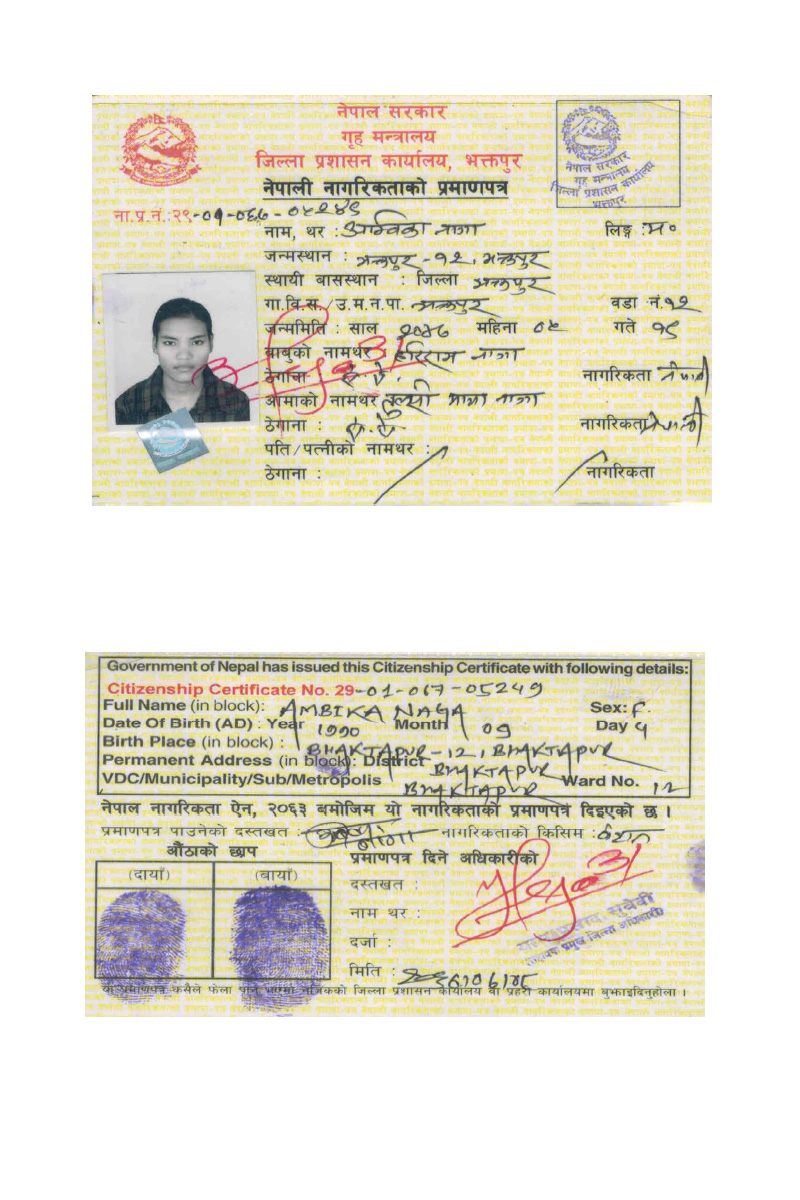 नेपाल सरकार
गृह मन्त्रालय
जिल्ला प्रशासन कार्यालय, भक्तपुर
नेपाली नागरिकताको प्रमाणपत्र
नेपाल सरकार
गृह मन्त्रालय
जिल्ला प्रशासन कार्यालय
भक्तपुर
ना.प्र.नं.:२९-०१-०६७-०५२४९
नाम, थर : अम्बिका नागा लिङ्ग : म०
जन्मस्थान : भक्तपुर -१२, भक्तपुर
स्थायी बासस्थान : जिल्ला भक्तपुर
गा.वि.स./उ.म.न.पा. भक्तपुर वडा नं.१२
जन्ममिति : साल २०४७ महिना ०५ गते १९
बाबुको नामथर : हरिराम नागा
ठेगाना : ऐ. ऐ. नागरिकता नेपाली
आमाको नामथर : तुल्सी माया नागा
ठेगाना : ऐ. ऐ. नागरिकता नेपाली
पति/पत्नीको नामथर :
ठेगाना : नागरिकता
Government of Nepal has issued this Citizenship Certificate with following details:
Citizenship Certificate No. 29-01-067-05249
Full Name (in block): AMBIKA NAGA Sex: F.
Date Of Birth (AD) : Year 1990 Month 09 Day 4
Birth Place (in block) : BHAKTAPUR-12, BHAKTAPUR
Permanent Address (in block): District BHAKTAPUR
VDC/Municipality/Sub/Metropolis BHAKTAPUR Ward No. 12
नेपाल नागरिकता ऐन, २०६३ बमोजिम यो नागरिकताको प्रमाणपत्र दिइएको छ ।
प्रमाणपत्र पाउनेको दस्तखत : नागरिकताको किसिम : वंशज
औंठाको छाप प्रमाणपत्र दिने अधिकारीको
(दायाँ) (बायाँ)
दस्तखत :
नाम थर :
दर्जा :
मिति :
यो प्रमाणपत्र कसैले फेला पारे भएमा नजिकको जिल्ला प्रशासन कार्यालय वा प्रहरी कार्यालयमा बुझाइदिनुहोला ।